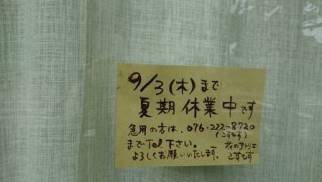 9/3(木)まで
夏期休業中です
急用の方は、076-222-8720
までTel下さい。
よろしくお願いいたします。